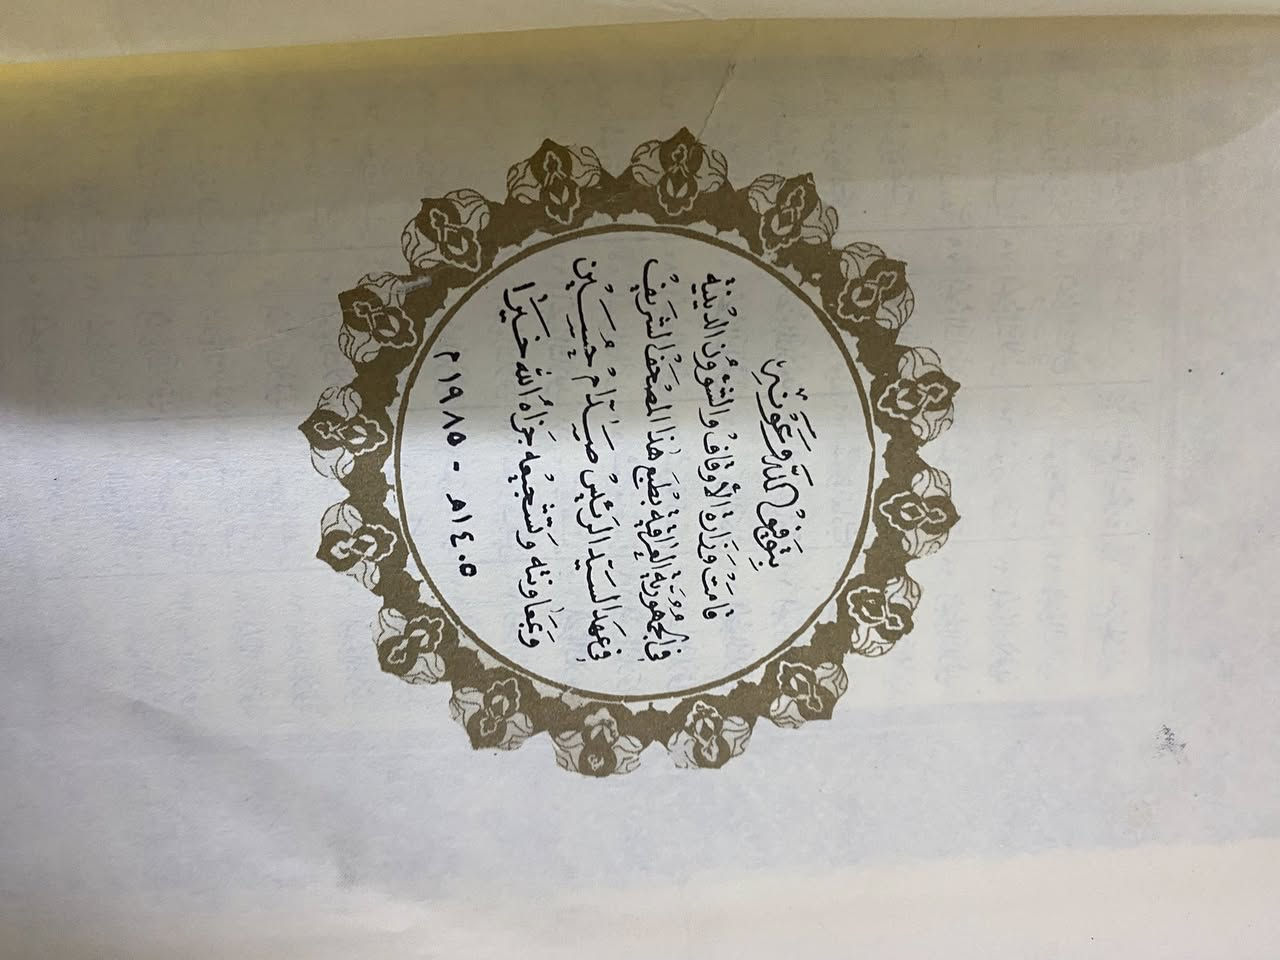 بِتَوفِيقِ اللهِ وَعَوْنِهِ
قَامَتْ وِزَارَةُ الأَوقَافِ وَالشُّؤُونِ الدِّينِيَّةِ
فِي الجُمْهُورِيَّةِ العِرَاقِيَّةِ بِطَبْعِ هٰذَا المُصْحَفِ الشَّرِيفِ
فِي عَهْدِ السَيِّدِ الرَّئِيسِ صَدَّام حُسَيْن
وَبِمُعَاوَنَتِهِ وَتَشْجِيعِهِ جَزَاهُ اللهُ خَيْرًا
١٤٠٥هـ - ١٩٨٥م